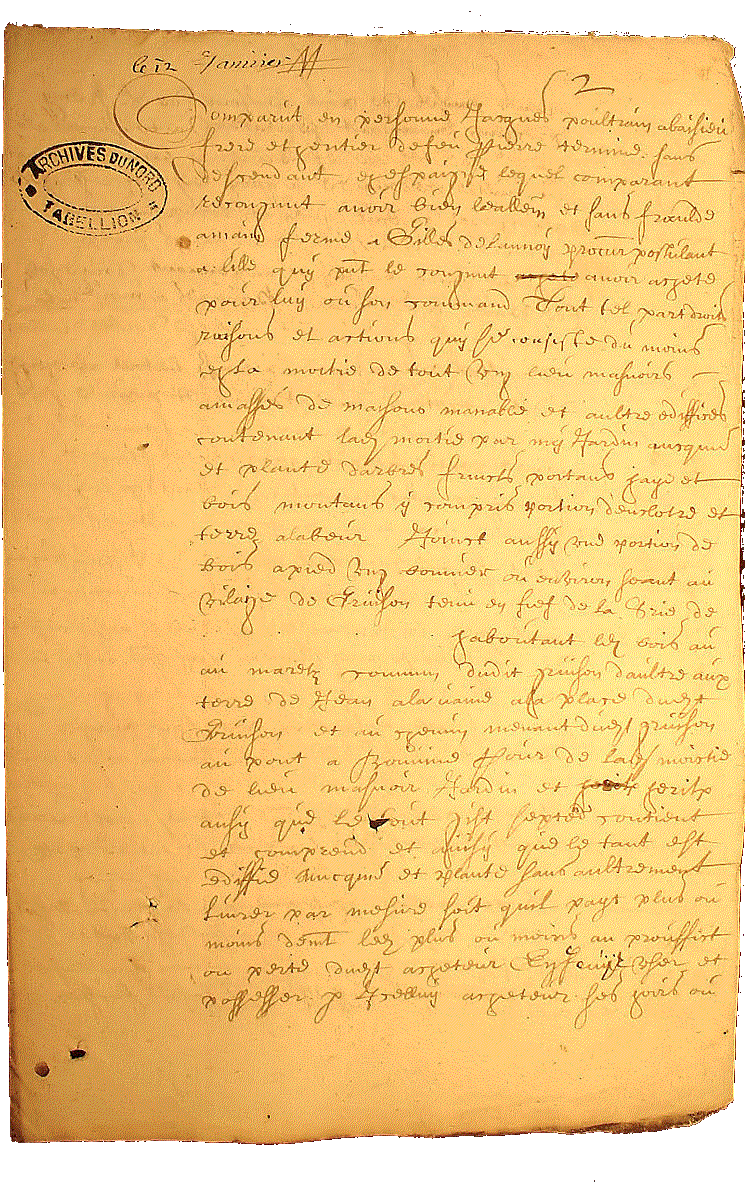 le 12 Janvier
2
ARCHIVES DU NORD
TABELLION
Comparut en personne Jacques poultrain
frere et heritier de feu Pierre termine sans
descendant lequel comparant
recongnut avoir bien leallem et sans fraulde
ferme a Gilles delannoy procur postulant
a Lille quy pnt le congnut avoir achete
pour luy ou son command Tout tel part droit
raisons et actions quy se consiste du moins
en la moitie de tout ung lieu manoirs
amasses de maisons manable et aultre ediffices
contenant lad moitie par my Jardin
et plante darbres fructs portans haye et
bois montans y compris portion denclotre et
terre a labeur Joinct aussy une portion de
bois a pied ung bonnier ou environ seant au
vilaige de Gruson tenu en fief de la Srie de
haboutant led bois au
au maretz commun dudit gruson daultre aux
terre de Jean a la place dudt
Gruson et au chemin menant dudt gruson
au pont a Bouvine Pour de lad moictie
de lieu manoir Jardin et herit
ainsy que le tout gist contient
et comprend et ainsy que le tout est
ediffie et plante sans aultrement
Livrer par mesure soit quil y ayt plus ou
moins led plus ou moins au prouffict
ou perte dudt acheteur user et
possesser p Icelluy acheteur ses hoirs ou